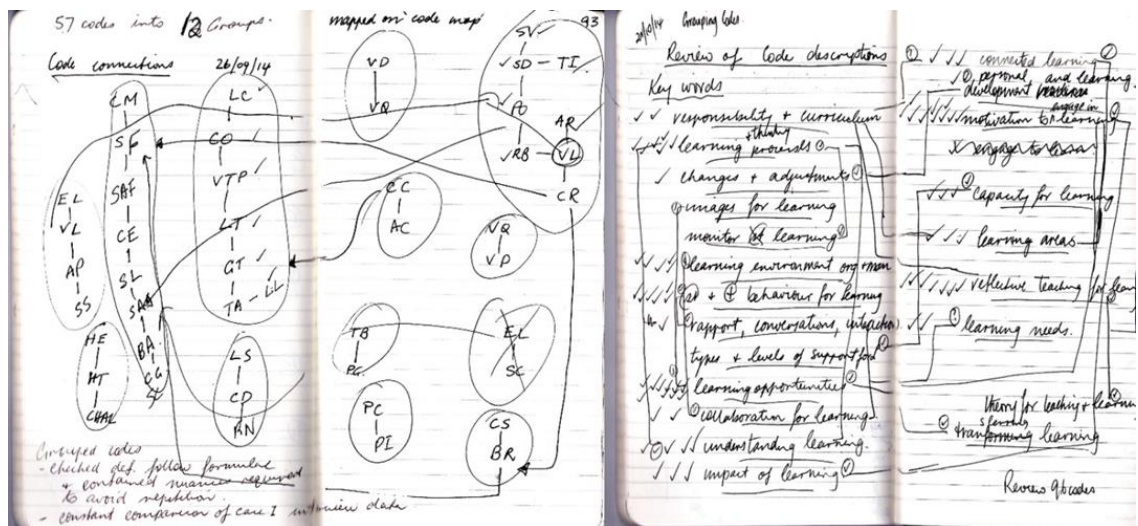 57 codes into 12 Groups.
mapped on 'code map'
93
Code connections
26/09/14
CM
SF
SAF
CE
SL
SAA
BA
CG
EL
VL
AP
SS
HE
HT
CHAL
LC
CO
VTP
LT
GT
TA - LL
LS
CD
RN
VD
VQ
SV
SD - TI
PO
RB - VL
AR
CR
CC
AC
VQ
VP
TB
PG
EL
SC
PC
PI
CS
BR
Grouped codes
- checked def. follow formulae
+ contained nuances required
to avoid repetition.
- constant comparison of case I interview data
20/10/14
Grouping Codes.
Review of Code descriptions
Key words
responsibility + curriculum
+ thinking
learning processes
changes + adjustments
images for learning
monitor learning
learning environment org + man
+ behaviour for learning
rapport, conversations, interaction
types + levels of support for
learning opportunities
collaboration for learning
understanding learning.
impact of learning
connected learning
personal and learning
development
engage in
motivation to learning
capacity for learning
learning areas
reflective teaching for
learning needs.
theory for teaching + learning
transforming learning
Review 96 codes